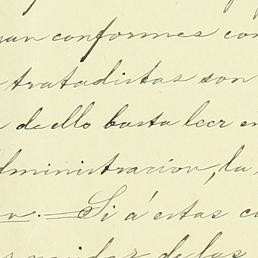 conformes con
tratadistas son
de ello basta leer en
dministracion, la
Si á estas c
de las